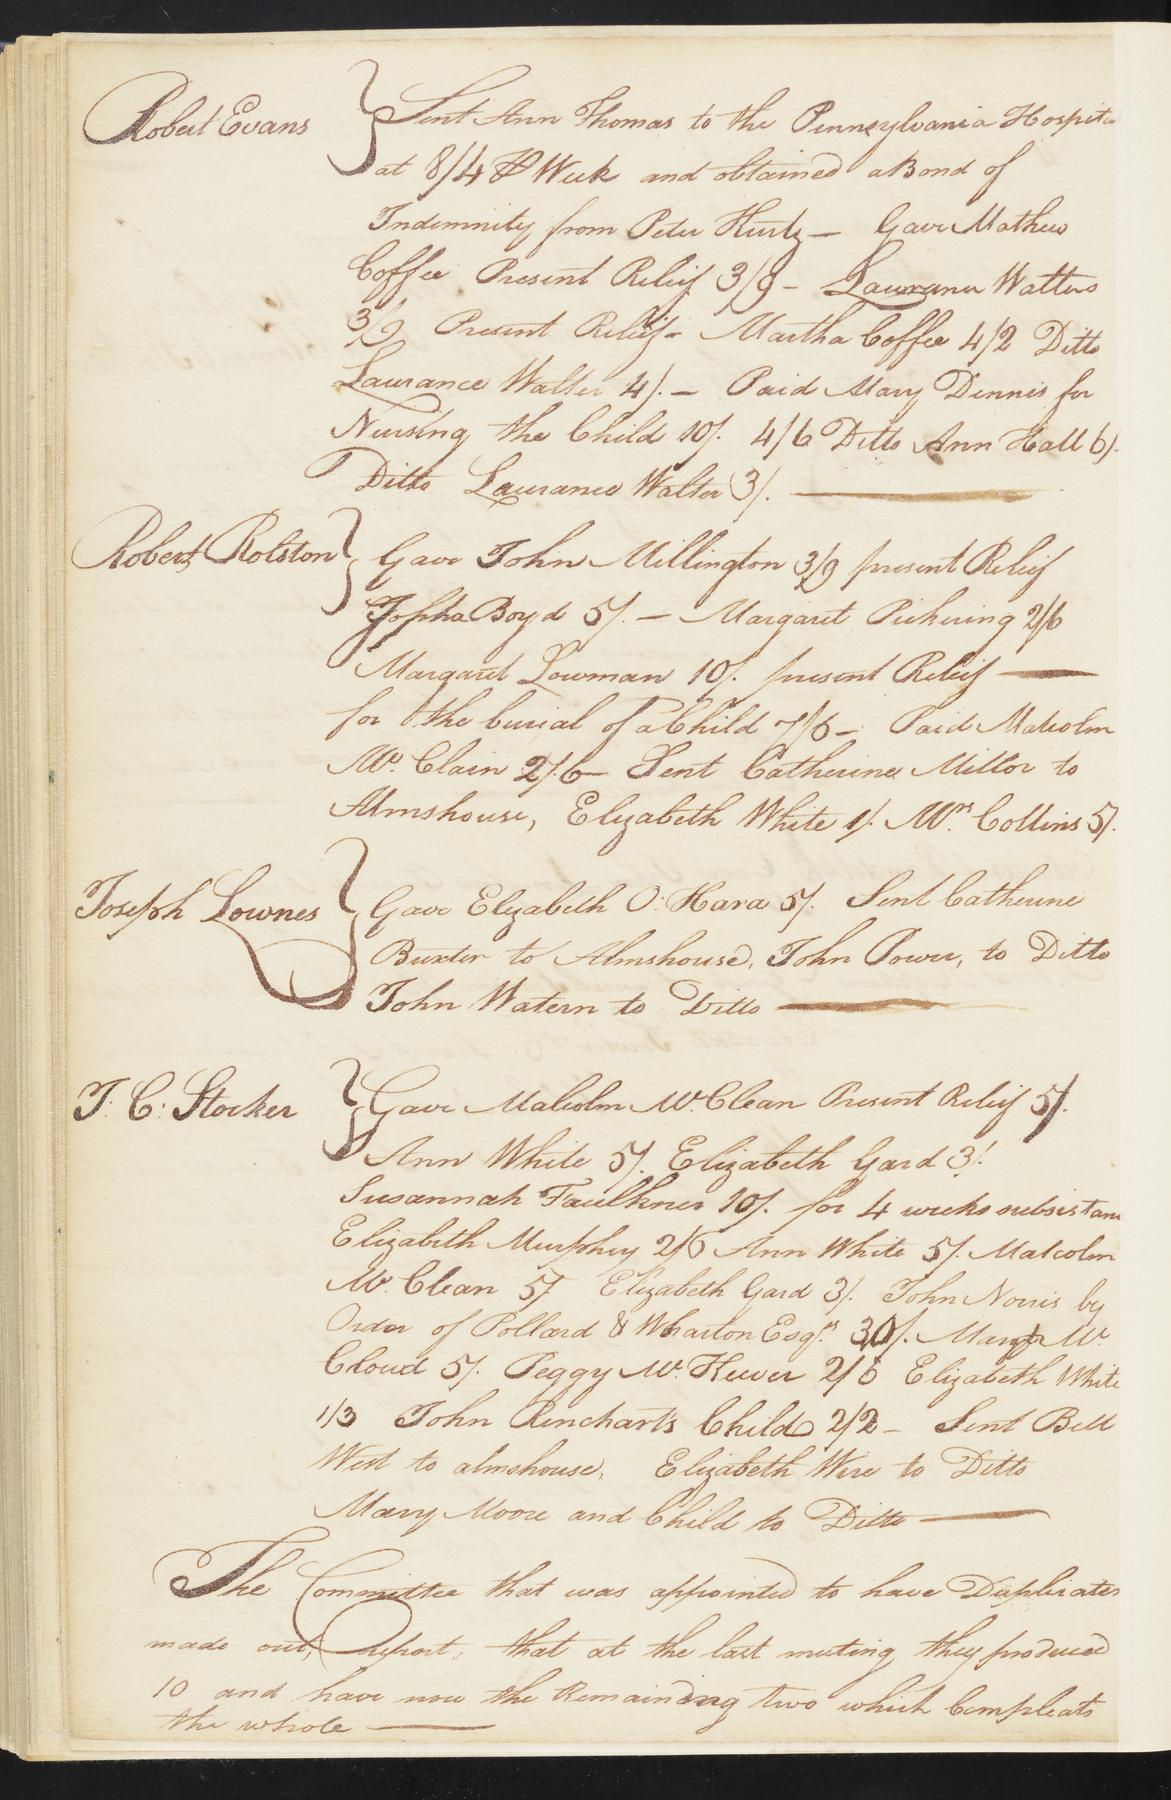 Robert Evans } Sent Ann Thomas to the Pennsylvania Hospita
at 8/4 ⅌ Week and obtained a Bond of
Indemnity from Peter Hurtz — Gave Mathew
Coffee Present Relief 3/9 — Laurance Watters
3/9 Present Relief - Martha Coffee 4/2 Ditto
Laurance Walter 4/. — Paid Mary Dennis for
Nursing the Child 10/. 4/6 Ditto Ann Hall 6/.
Ditto Laurance Walter 3/. —
Robert Rolston } Gave John Millington 3/9 present Relief
Boyd 5/. — Margaret Pickering 2/6
Margaret Lowman 10/. present Relief —
for the burial of a Child 7/6 — Paid Malcolm
Mc. Clain 2/.6 — Sent Catherine Miller to
Almshouse, Elizabeth White 1/. Wm. Collins 5/.
Joseph Lownes } Gave Elizabeth O: Hara 5/. Sent Catherine
Buxter to Almshouse, John Power, to Ditto
John Watern to Ditto —
T: C: Stocker } Gave Malcolm Mc. Clean Present Relief 5/.
Ann White 5/. Elizabeth Gard 3/.
Susannah Faulkner 10/. for 4 weeks subsistanc
Elizabeth Murphey 2/6 Ann White 5/. Malcolm
Mc. Clean 5/ Elizabeth Gard 3/. John Norris by
Order of Pollard & Wharton Esqrs. 30/. Margt Mc.
Cloud 5/. Peggy Mc. Kever 2/6 Elizabeth White
1/3 John Rencharts Child 2/2 — Sent Bell
West to almshouse, Elizabeth Wire to Ditto
Mary Moore and Child to Ditto —
The Committee that was appointed to have Duplicates
made out, report, that at the last meeting they produced
10 and have now the Remaining two which Compleats
the whole —